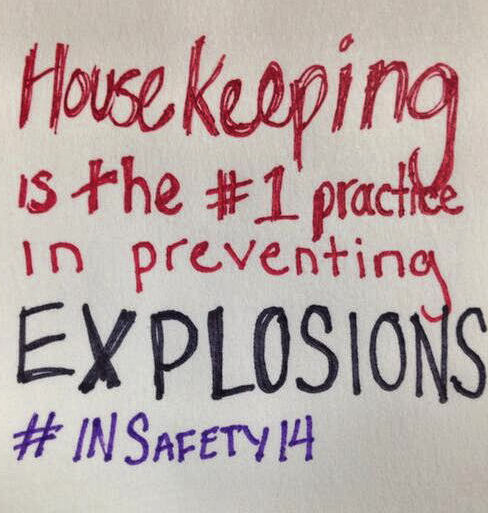 Housekeeping
is the #1 practice
in preventing
EXPLOSIONS
#INSAFETY14